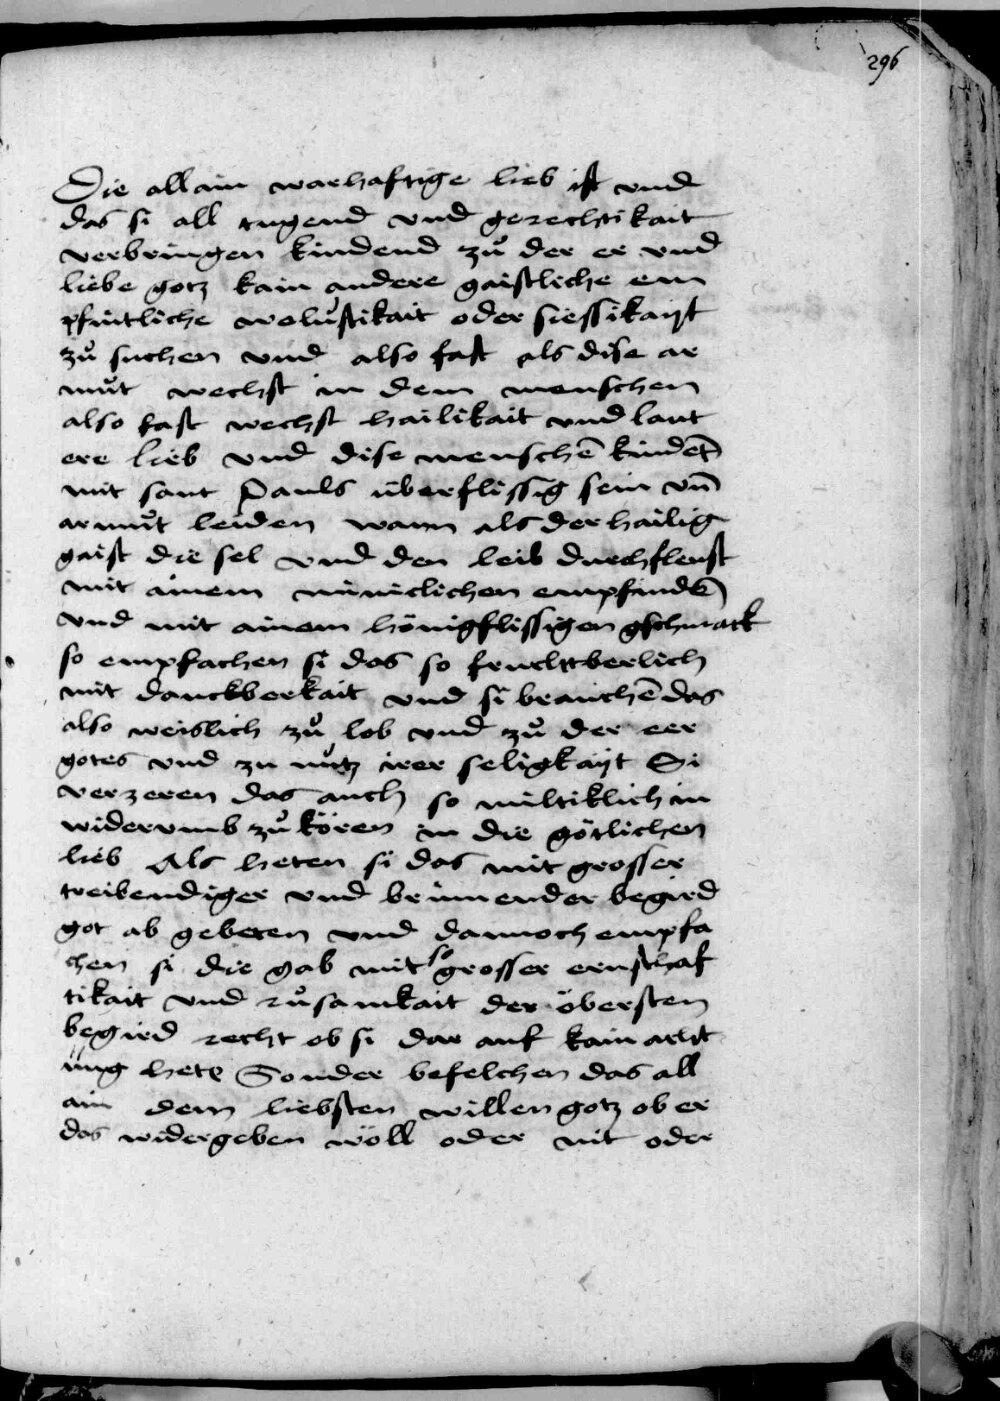 296
Die allain warhaftige lieb ist vnd
das si all tugend vnd gerechtikait
verbringen kindend zů der er vnd
liebe gotz kain andere gaistliche em
pfintliche wolustikait oder siessikayt
zů suchen vnd also fast als dise ar
můt wechst in dem menschen
also fast wechst hailikait vnd laut
ere lieb vnd dise menschē kindēt
mit sant Pauls überflissig sein vn̄
armůt leiden wann als der hailig
gaist die sel vnd den leib durchfleust
mit ainem miniclichen empfindē
vnd mit ainem hönigflissigen gschmack
so empfachen si das so fruchtberlich
mit danckberkait vnd si brauchē das
also weislich zů lob vnd zů der eer
gotes vnd zu nutz irer seligkayt Si
verzeren das auch so miltiklich in
widerumb zů kören in die götlichen
lieb Als heten si das mit grosser
treibendiger vnd brinnender begird
got ab gebeten vnd dannoch empfa
chen si die gab mit so grosser ernsthaf
tikait vnd růsamkait der öbersten
begird recht ob si dar auf kain acht
üng hete Sonder befelchen das all
ain dem liebsten willen gotz ob er
das widergeben wöll oder nit oder